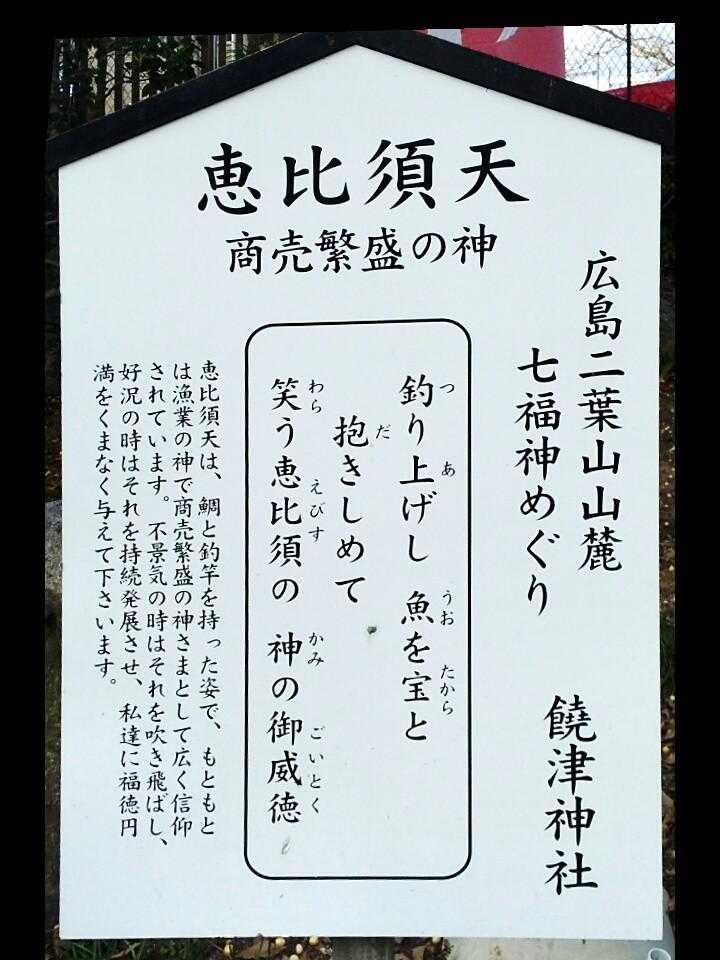 恵比須天
商売繁盛の神
広島二葉山山麓
七福神めぐり
饒津神社
釣り上げし 魚を宝と
抱きしめて
笑う恵比須の 神の御威徳
つ あ うお たから
だ
わら えびす かみ ごいとく
恵比須天は、鯛と釣竿を持った姿で、もともと
は漁業の神で商売繁盛の神さまとして広く信仰
されています。不景気の時はそれを吹き飛ばし、
好況の時はそれを持続発展させ、私達に福徳円
満をくまなく与えて下さいます。